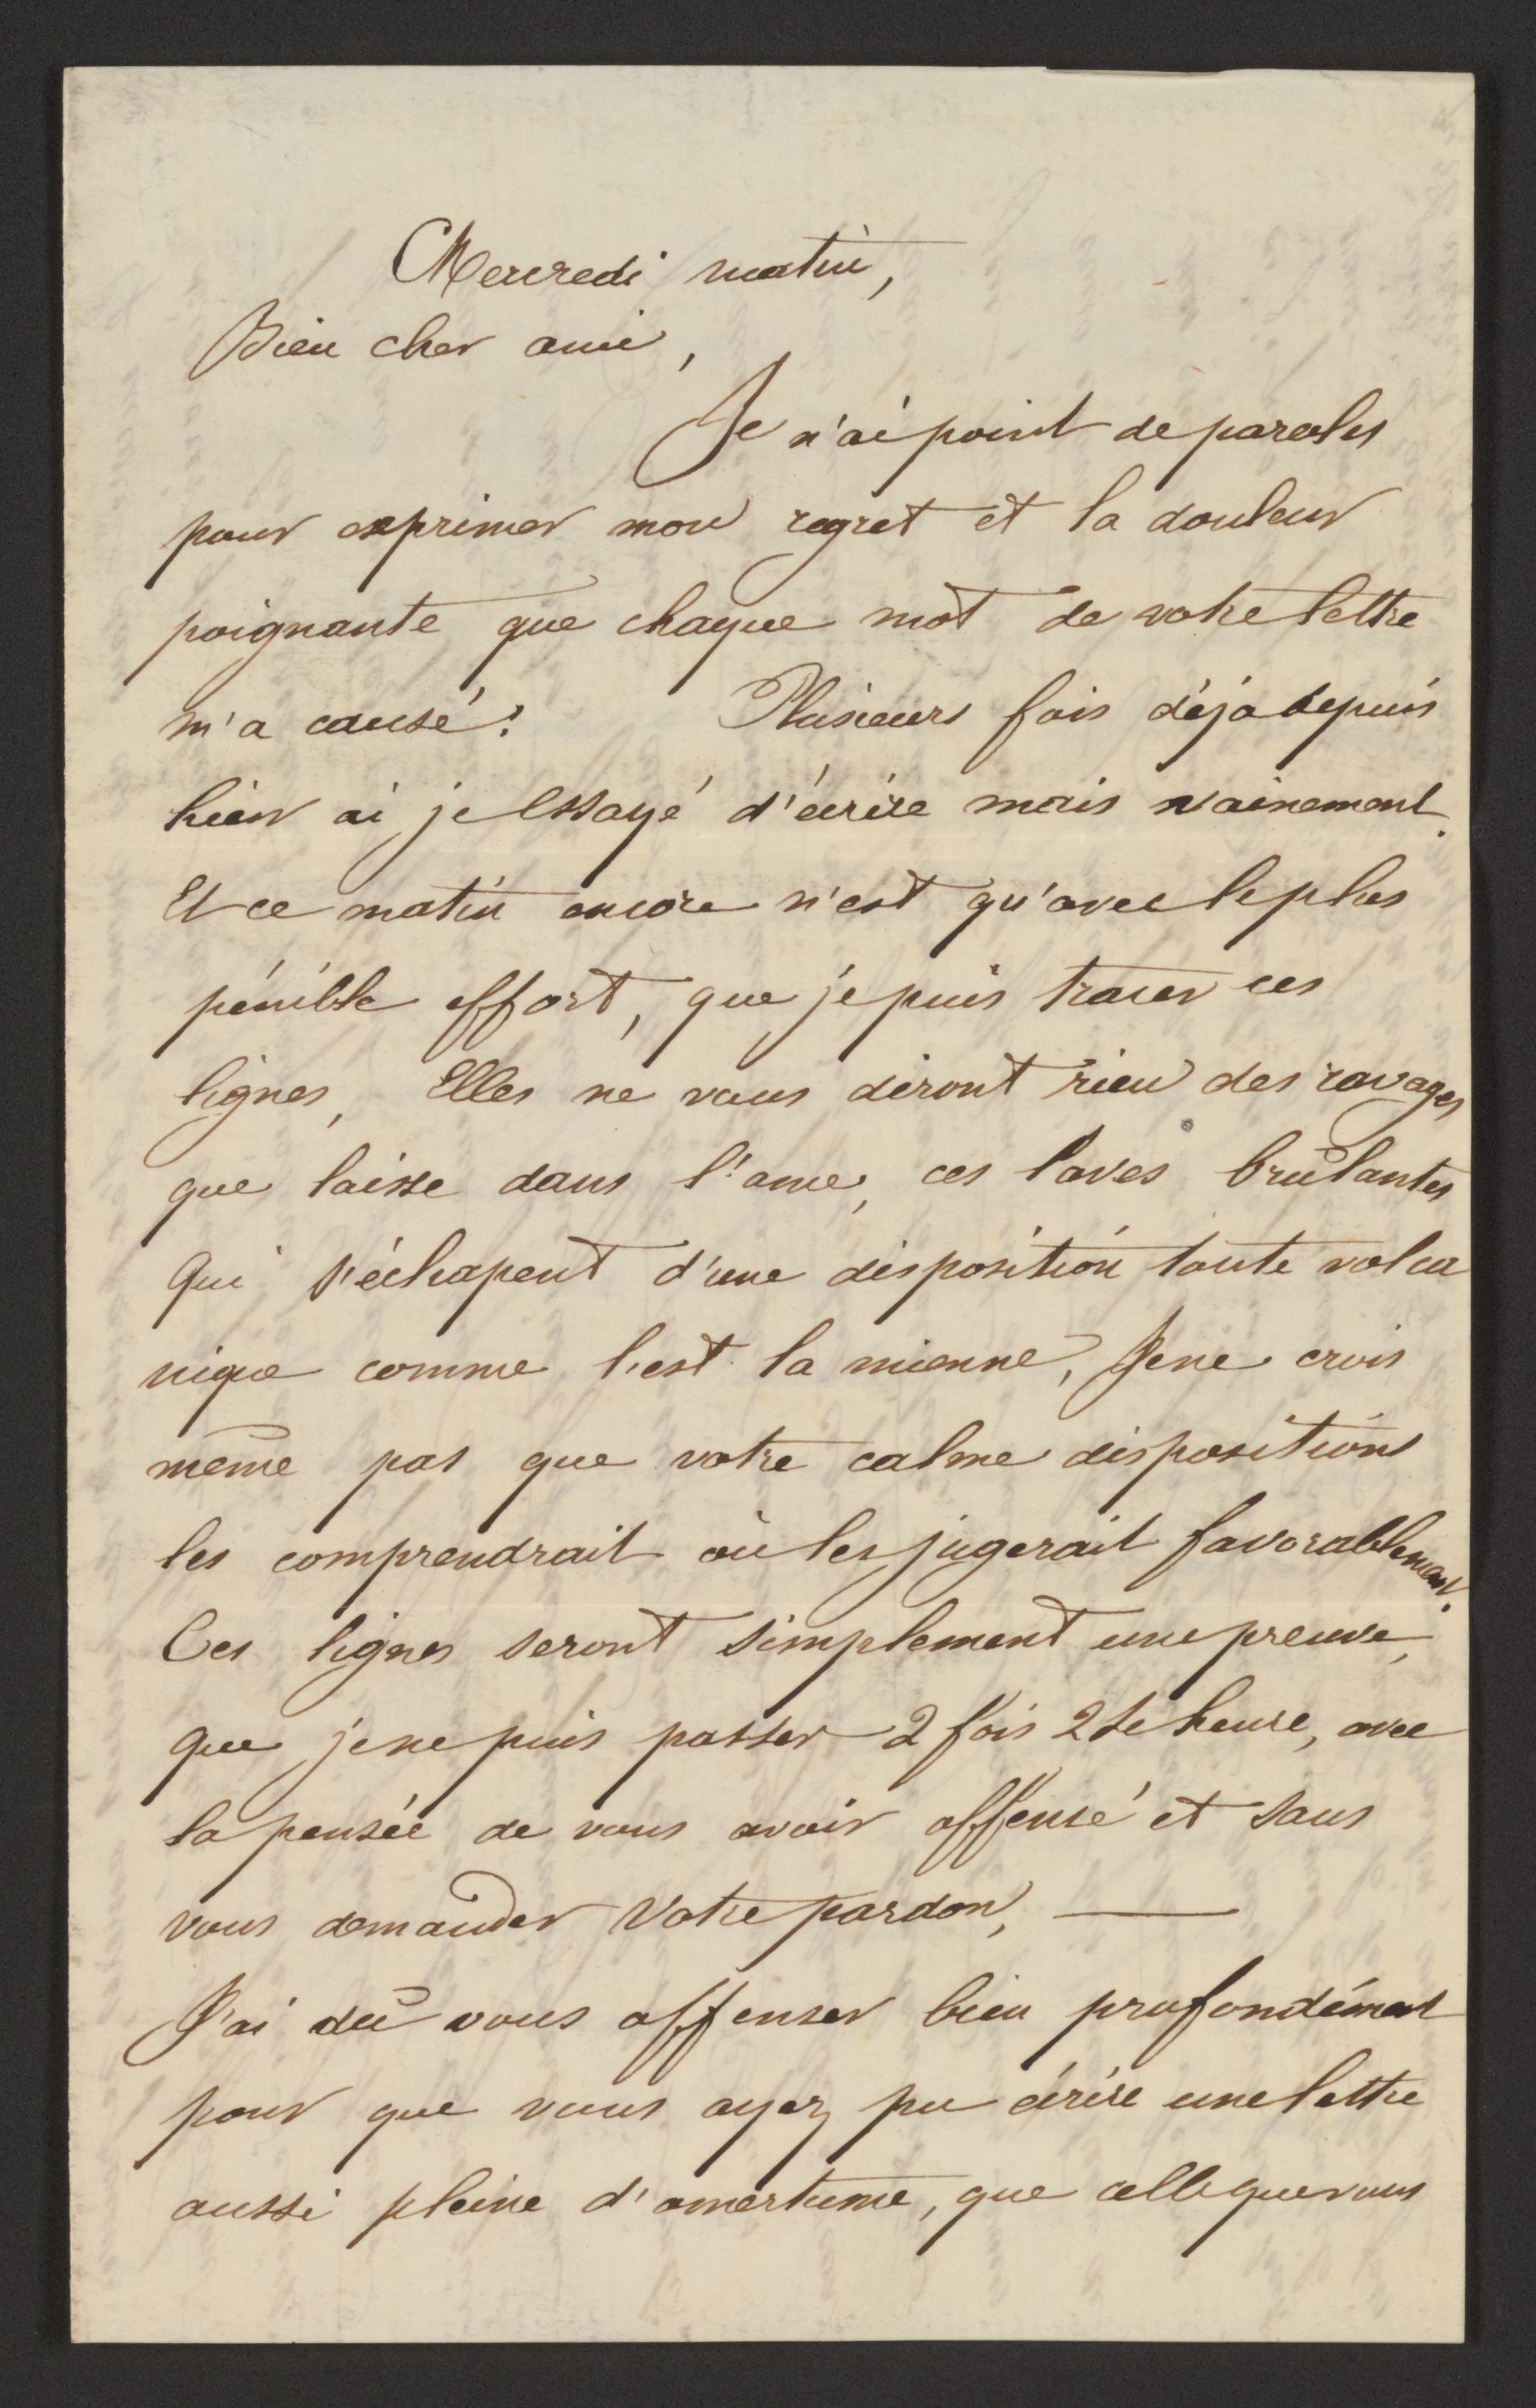 Mercredi matin,
Bien cher ami,
Je n'ai point de paroles
pour exprimer mon regret et la douleur
poignante que chaque mot de votre lettre
m'a causé! Plusieurs fois déja depuis
hier ai je essayé d'écrire mais vainement.
Et ce matin encore n'est qu'avec le plus
pénible effort, que je puis tracer ces
lignes, Elles ne vous diront rien des ravages
que laisse dans l'ame, ces laves brûlantes
qui s'échapent d'une disposition toute volca
nique comme l'est la mienne, Je ne crois
même pas que votre calme disposition
les comprendrait où les jugerait favorablement.
Ces lignes seront simplement une preuve,
que je ne puis passer 2 fois 24 heure, avec
la pensée de vous avoir offensé et sans
vous demander Votre pardon, —
J'ai dû vous offenser bien profondément
pour que vous ayez pu écrire une lettre
aussi pleine d'amertume, que celle que vous